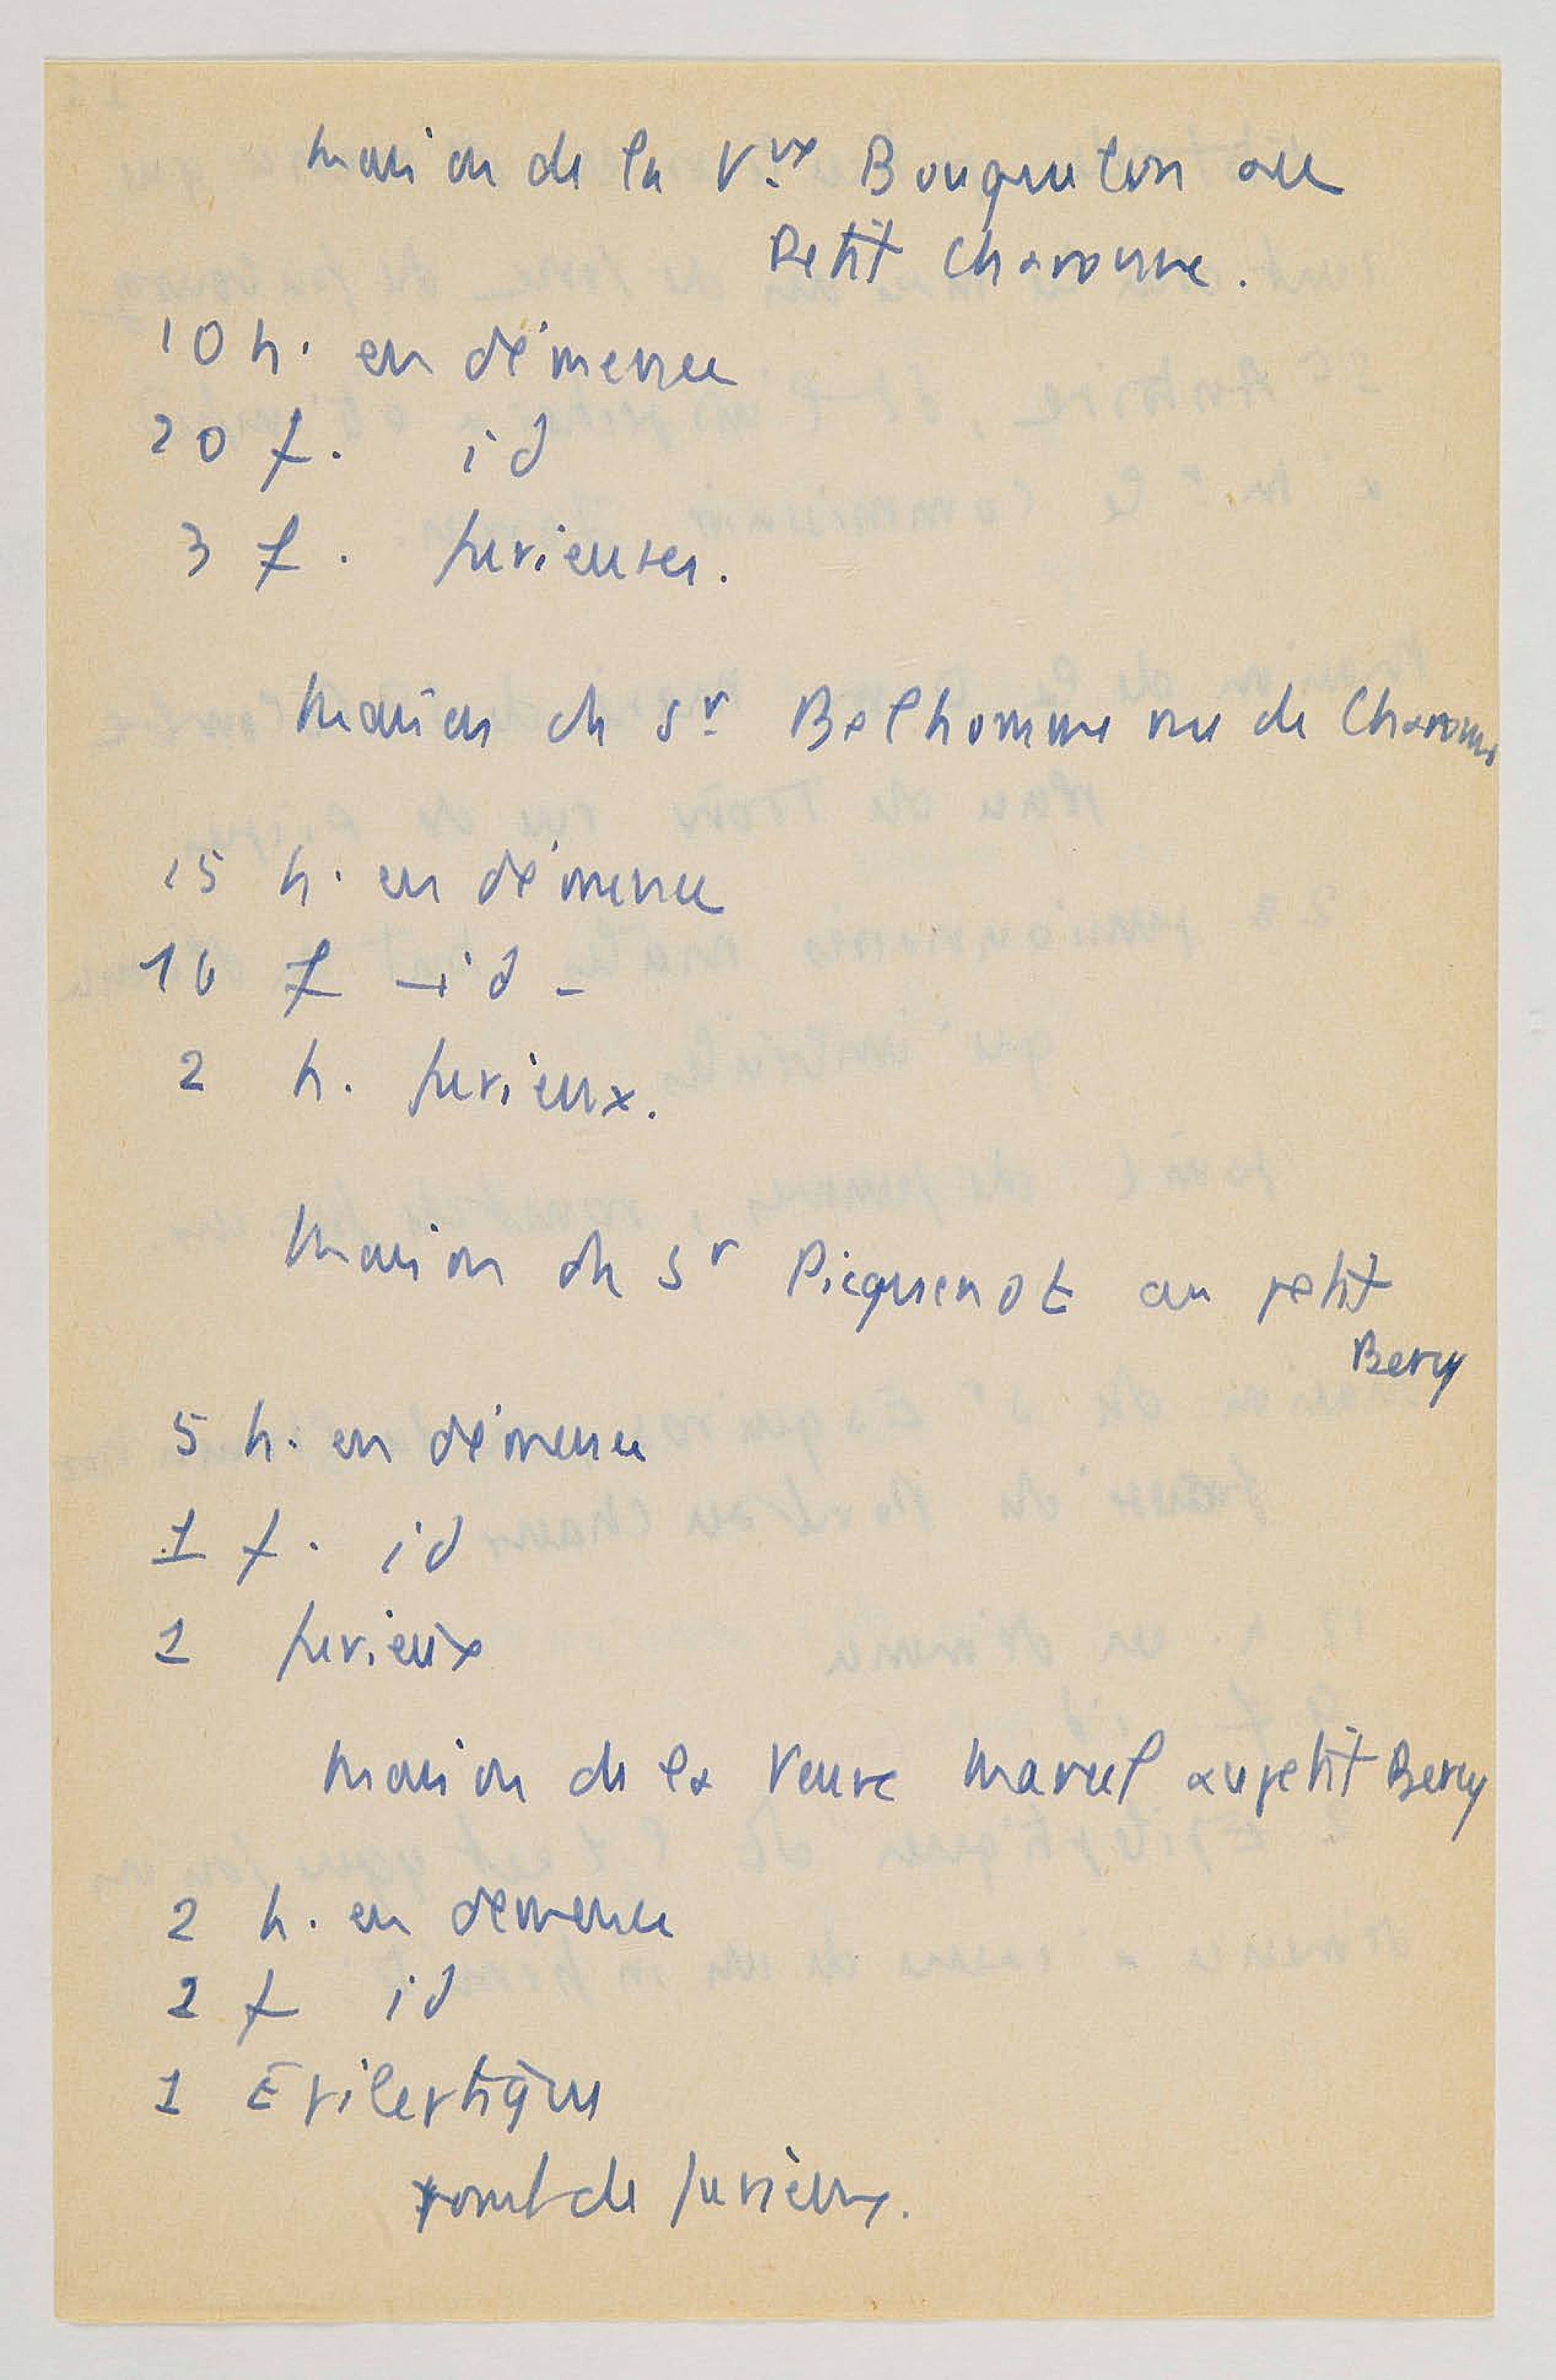 Maison de la Vve Bouquelon au
Petit Charonne.
10 h. en démence
20 f. id
3 f. furieuses.
Maison du Sr Belhomme rue de Charonne
15 h. en démence
16 f - id -
2 h. furieux.
Maison du Sr Picquenot au petit
Bercy
5 h. en démence
1 f. id
1 furieux
Maison de la Veuve Marcel au petit Bercy
2 h. en démence
2 f id
1 Epileptique
point de furieux.